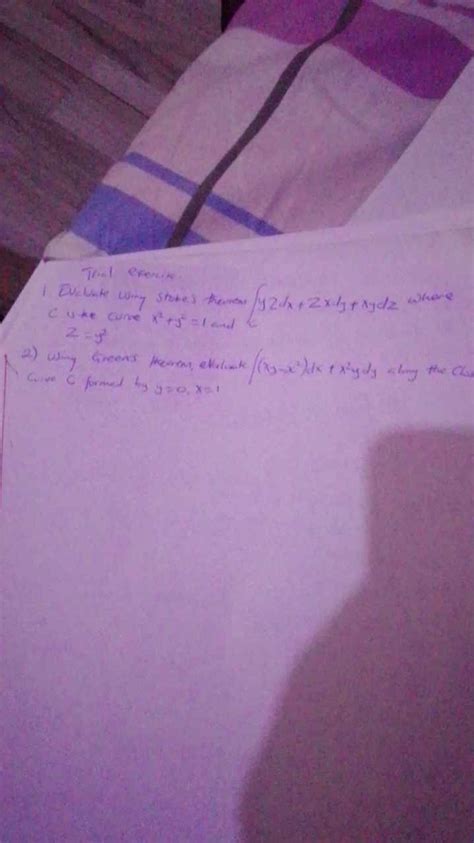 Trial exercise.
1. Evaluate using stoke's theorem ∫c yzdx + zxdy + xydz where
C is the curve x² + y² = 1 and
z = y²
2) using Green's theorem, evaluate ∫(xy - x²)dx + x²ydy along the
curve C formed by y = 0, x = 1